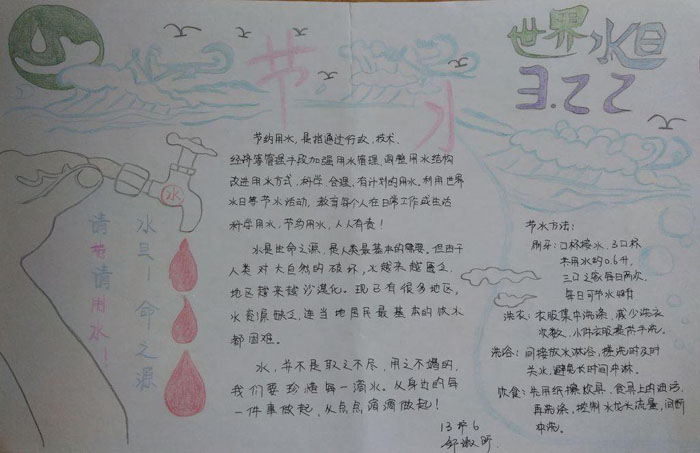 世界水日
3.22
节水
节约用水,是指通过行政、技术、
经济等管理手段加强用水管理,调整用水结构
改进用水方式,科学、合理、有计划的用水。利用世界
水日等节水活动,教育每个人在日常工作或生活
科学用水,节约用水,人人有责!
水是生命之源,是人类最基本的需要。但由于
人类对大自然的破坏,水越来越匮乏,
地区越来越沙漠化。现已有很多地区,
水资源缺乏,连当地居民最基本的饮水
都困难。
水,并不是取之不尽,用之不竭的,
我们要珍惜每一滴水。从身边的每
一件事做起,从点点滴滴做起!
水
水是一命之源
请节请用水!
节水方法:
刷牙:口杯接水,3口杯
用水约0.6升,
三口之家每日两次,
每日可节水
洗衣:衣服集中洗涤,减少洗衣
次数,小件衣服提前手洗。
洗浴:间接放水淋浴,搓洗时及时
关水,避免长时间冲淋。
饮食:先用纸擦炊具、食具上的油污,
再洗涤,控制水龙头流量,间断
冲洗。
13护6
邹淑